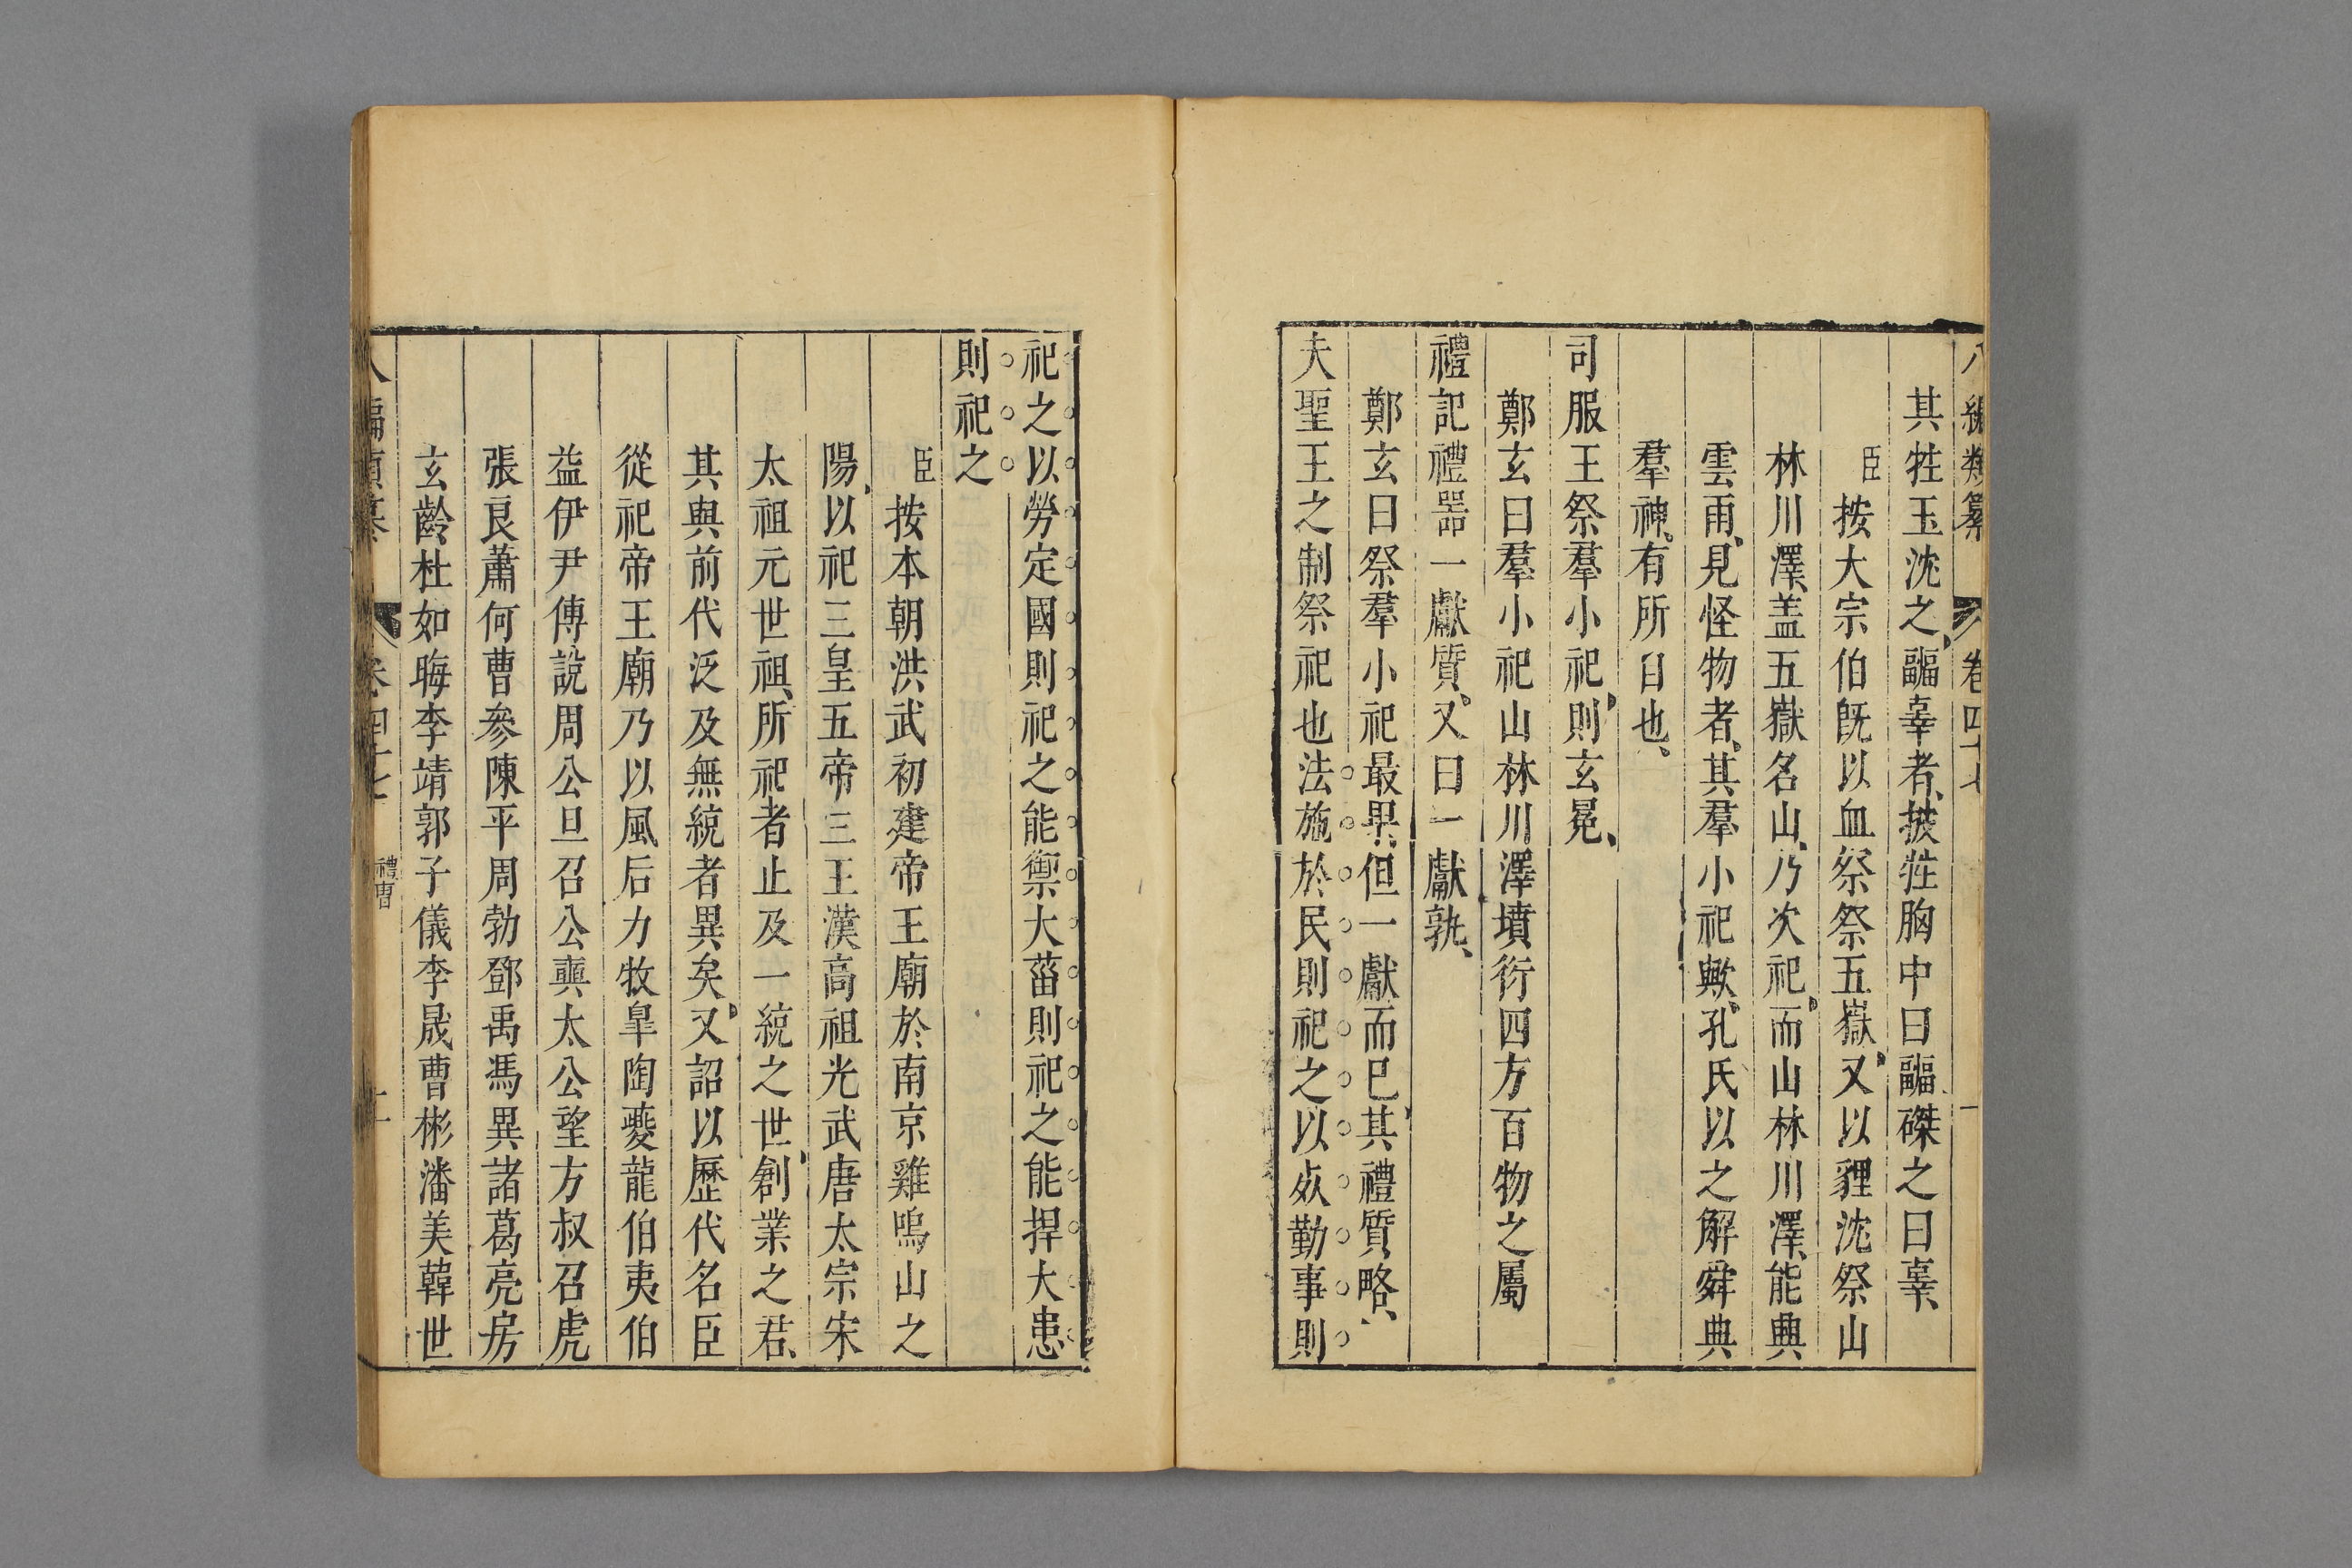 八編類纂 卷四十七
其牲玉沈之疈辜者披牲胸中曰疈磔之曰辜
臣按大宗伯旣以血祭祭五嶽又以貍沈祭山
林川澤蓋五嶽名山乃次祀而山林川澤能興
雲雨見怪物者其羣小祀歟孔氏以之解舜典
羣神有所自也
司服王祭羣小祀則玄冕
鄭玄曰羣小祀山林川澤墳衍四方百物之屬
禮記禮器一獻質又曰一獻孰
鄭玄曰祭羣小祀最畢但一獻而已其禮質略
夫聖王之制祭祀也法施於民則祀之以死勤事則
祀之以勞定國則祀之能禦大菑則祀之能捍大患
則祀之
臣按本朝洪武初建帝王廟於南京雞鳴山之
陽以祀三皇五帝三王漢高祖光武唐太宗宋
太祖元世祖所祀者止及一統之世創業之君
其與前代泛及無統者異矣又詔以歷代名臣
從祀帝王廟乃以風后力牧皐陶夔龍伯夷伯
益伊尹傅說周公旦召公奭太公望方叔召虎
張良蕭何曹參陳平周勃鄧禹馮異諸葛亮房
玄齡杜如晦李靖郭子儀李晟曹彬潘美韓世
八編類纂 卷四十七 禮曹